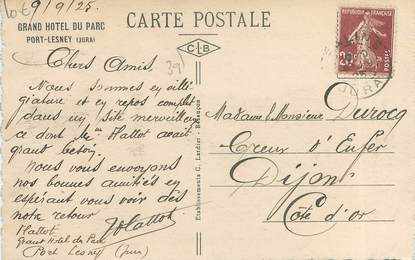 6 9/9/25.
GRAND HOTEL DU PARC
PORT-LESNEY (JURA)
CARTE POSTALE
Chers Amis,
Nous sommes en villé
giature et en repos complet
dans un site merveilleux
ce dont Mme Hattot avait
grant besoin.
Nous vous envoyons
nos bonnes amitiés en
espérant vous voir dès
notre retour
Hattot
Hattot
Grand Hotel du Parc
Port Lesney (Jura)
39
C B
Etablissements C. Lardier - Besançon
POSTES
JURA
Madame & Monsieur Durocq
Creux d'Enfer
Dijon
Côte d'or